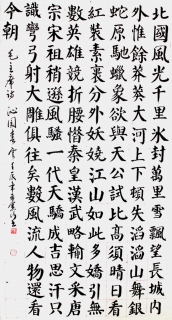 北國風光千里冰封萬里雪飄望長城內
外惟餘莽莽大河上下頓失滔滔山舞銀
蛇原馳蠟象欲與天公試比高須晴日看
紅裝素裹分外妖嬈江山如此多嬌引無
數英雄競折腰惜秦皇漢武略輸文采唐
宗宋祖稍遜風騷一代天驕成吉思汗只
識彎弓射大雕俱往矣數風流人物還看
今朝
毛主席詞 沁園春雪 壬辰年